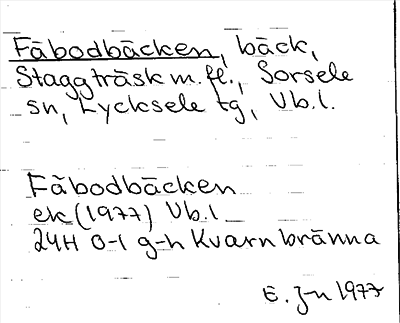 Fäbodbäcken, bäck,
Staggträsk m.fl., Sorsele
sn, Lycksele tg, Vb.l.
Fäbodbäcken
ek (1977) Vb.l
24H 0-1 g-h Kvarnbränna
E. J-n 1977